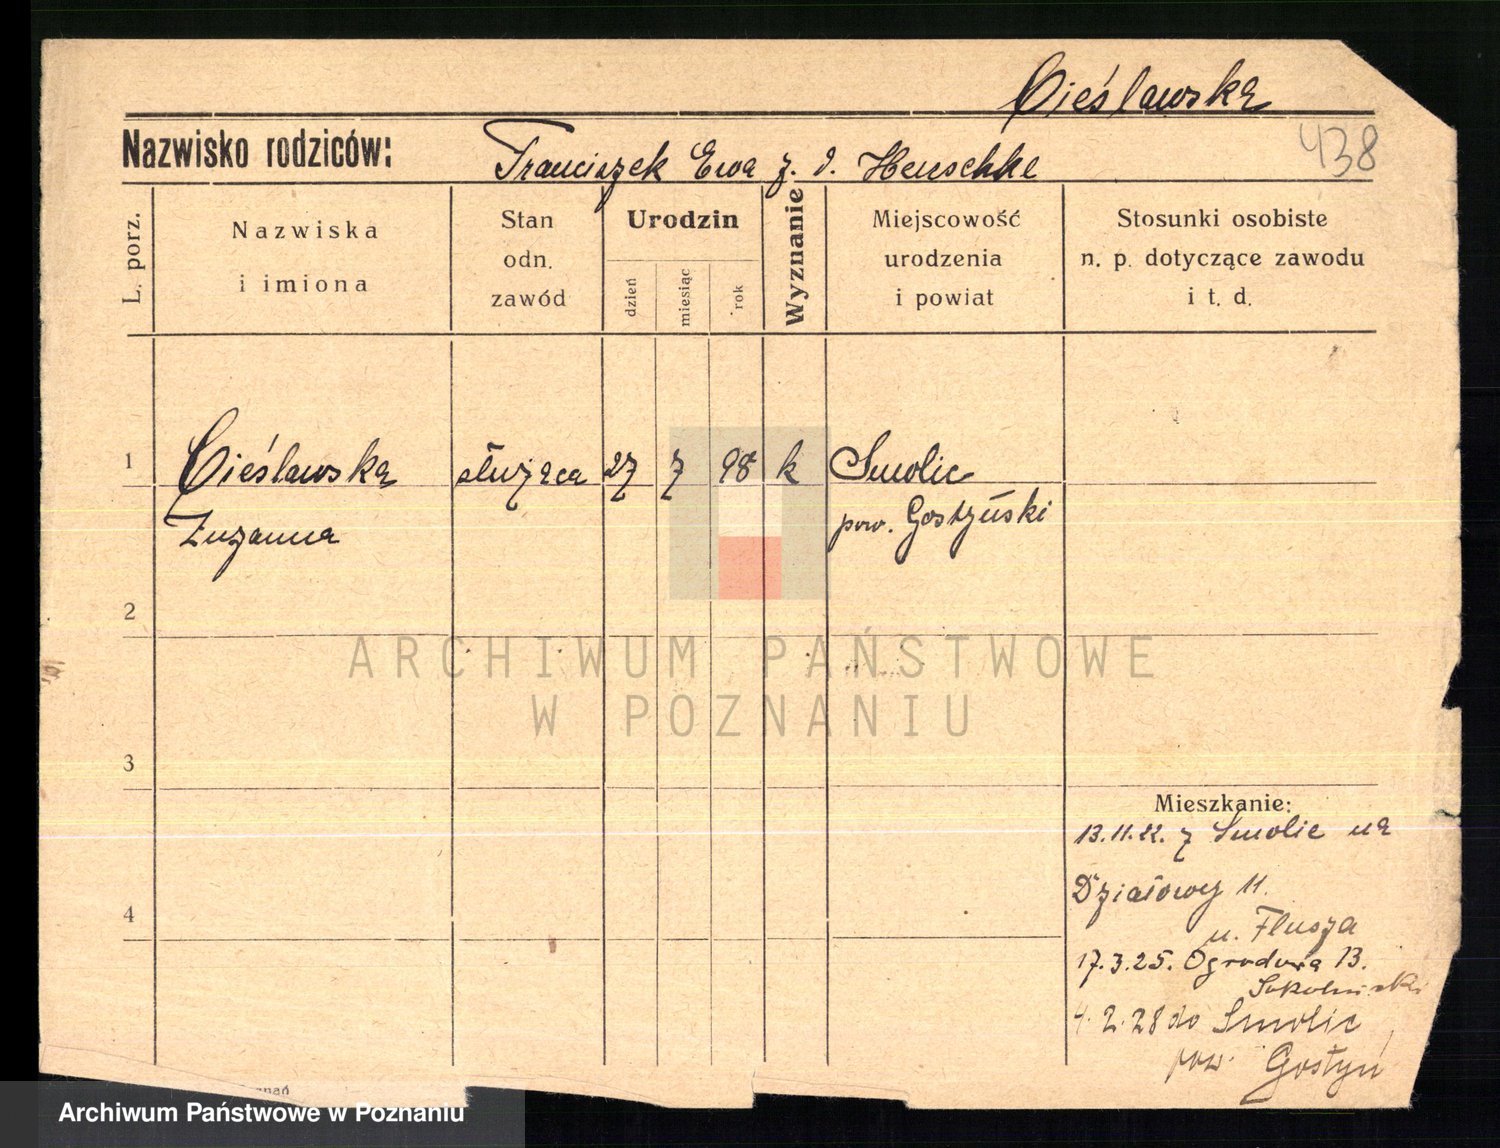 Cieślawska
438
Nazwisko rodziców: Franciszek Ewa z. d. Henschke
L. porz.
Nazwiska
i imiona
Stan
odn.
zawód
Urodzin
dzień
miesiąc
rok
Wyznanie
Miejscowość
urodzenia
i powiat
Stosunki osobiste
n. p. dotyczące zawodu
i t. d.
1 Cieślawska służąca 27 7 98 k Smolic
Zuzanna pow. Gostyński
2
3
4
Mieszkanie:
13.11.22. z Smolic na
Działowej 11.
u. Flusza
17.3.25. Ogrodowa 13.
4.2.28 do Smolic
pow. Gostyń
ARCHIWUM PAŃSTWOWE
W POZNANIU
Archiwum Państwowe w Poznaniu